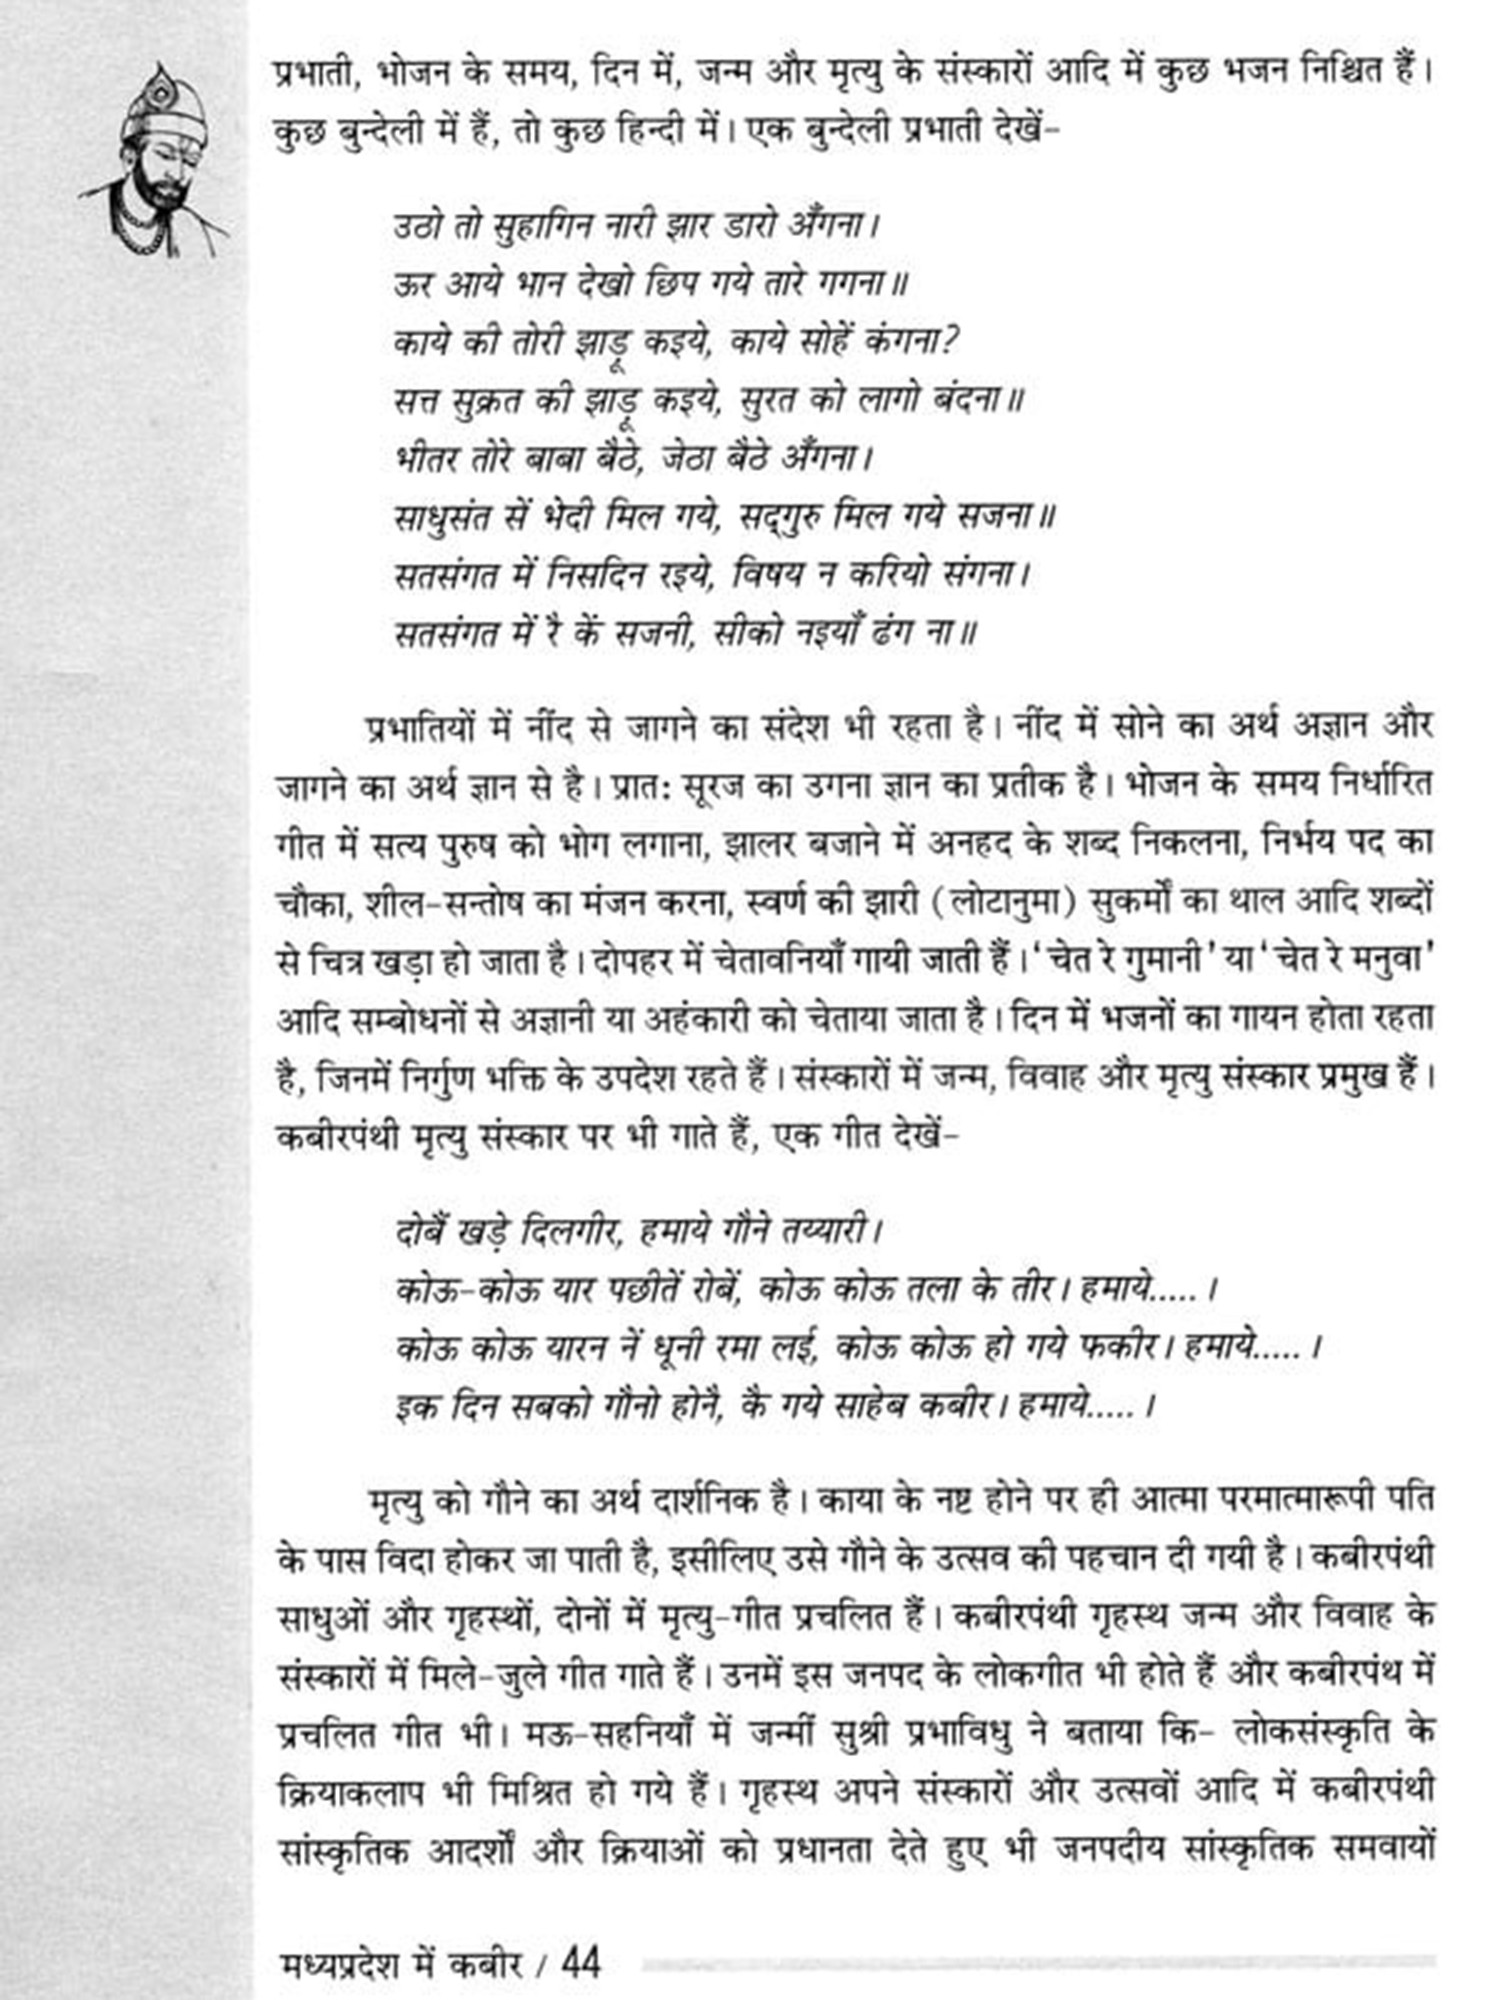 प्रभाती, भोजन के समय, दिन में, जन्म और मृत्यु के संस्कारों आदि में कुछ भजन निश्चित हैं।
कुछ बुन्देली में हैं, तो कुछ हिन्दी में। एक बुन्देली प्रभाती देखें-
उठो तो सुहागिन नारी झार डारो अँगना।
ऊर आये भान देखो छिप गये तारे गगना॥
काये की तोरी झाड़ू कइये, काये सोहें कंगना?
सत्त सुक्रत की झाड़ू कइये, सुरत को लागो बंदना॥
भीतर तोरे बाबा बैठे, जेठा बैठे अँगना।
साधुसंत सें भेदी मिल गये, सद्‌गुरु मिल गये सजना॥
सतसंगत में निसदिन रइये, विषय न करियो संगना।
सतसंगत में रै कें सजनी, सीको नइयाँ ढंग ना॥
प्रभातियों में नींद से जागने का संदेश भी रहता है। नींद में सोने का अर्थ अज्ञान और
जागने का अर्थ ज्ञान से है। प्रात: सूरज का उगना ज्ञान का प्रतीक है। भोजन के समय निर्धारित
गीत में सत्य पुरुष को भोग लगाना, झालर बजाने में अनहद के शब्द निकलना, निर्भय पद का
चौका, शील-सन्तोष का मंजन करना, स्वर्ण की झारी (लोटानुमा) सुकर्मों का थाल आदि शब्दों
से चित्र खड़ा हो जाता है। दोपहर में चेतावनियाँ गायी जाती हैं। 'चेत रे गुमानी' या 'चेत रे मनुवा'
आदि सम्बोधनों से अज्ञानी या अहंकारी को चेताया जाता है। दिन में भजनों का गायन होता रहता
है, जिनमें निर्गुण भक्ति के उपदेश रहते हैं। संस्कारों में जन्म, विवाह और मृत्यु संस्कार प्रमुख हैं।
कबीरपंथी मृत्यु संस्कार पर भी गाते हैं, एक गीत देखें-
दोबैं खड़े दिलगीर, हमाये गौने तय्यारी।
कोऊ-कोऊ यार पछीतें रोबें, कोऊ कोऊ तला के तीर। हमाये.....।
कोऊ कोऊ यारन नें धूनी रमा लई, कोऊ कोऊ हो गये फकीर। हमाये.....।
इक दिन सबको गौनो होनै, कै गये साहेब कबीर। हमाये.....।
मृत्यु को गौने का अर्थ दार्शनिक है। काया के नष्ट होने पर ही आत्मा परमात्मारूपी पति
के पास विदा होकर जा पाती है, इसीलिए उसे गौने के उत्सव की पहचान दी गयी है। कबीरपंथी
साधुओं और गृहस्थों, दोनों में मृत्यु-गीत प्रचलित हैं। कबीरपंथी गृहस्थ जन्म और विवाह के
संस्कारों में मिले-जुले गीत गाते हैं। उनमें इस जनपद के लोकगीत भी होते हैं और कबीरपंथ में
प्रचलित गीत भी। मऊ-सहनियाँ में जन्मीं सुश्री प्रभाविधु ने बताया कि- लोकसंस्कृति के
क्रियाकलाप भी मिश्रित हो गये हैं। गृहस्थ अपने संस्कारों और उत्सवों आदि में कबीरपंथी
सांस्कृतिक आदर्शों और क्रियाओं को प्रधानता देते हुए भी जनपदीय सांस्कृतिक समवायों
मध्यप्रदेश में कबीर / 44